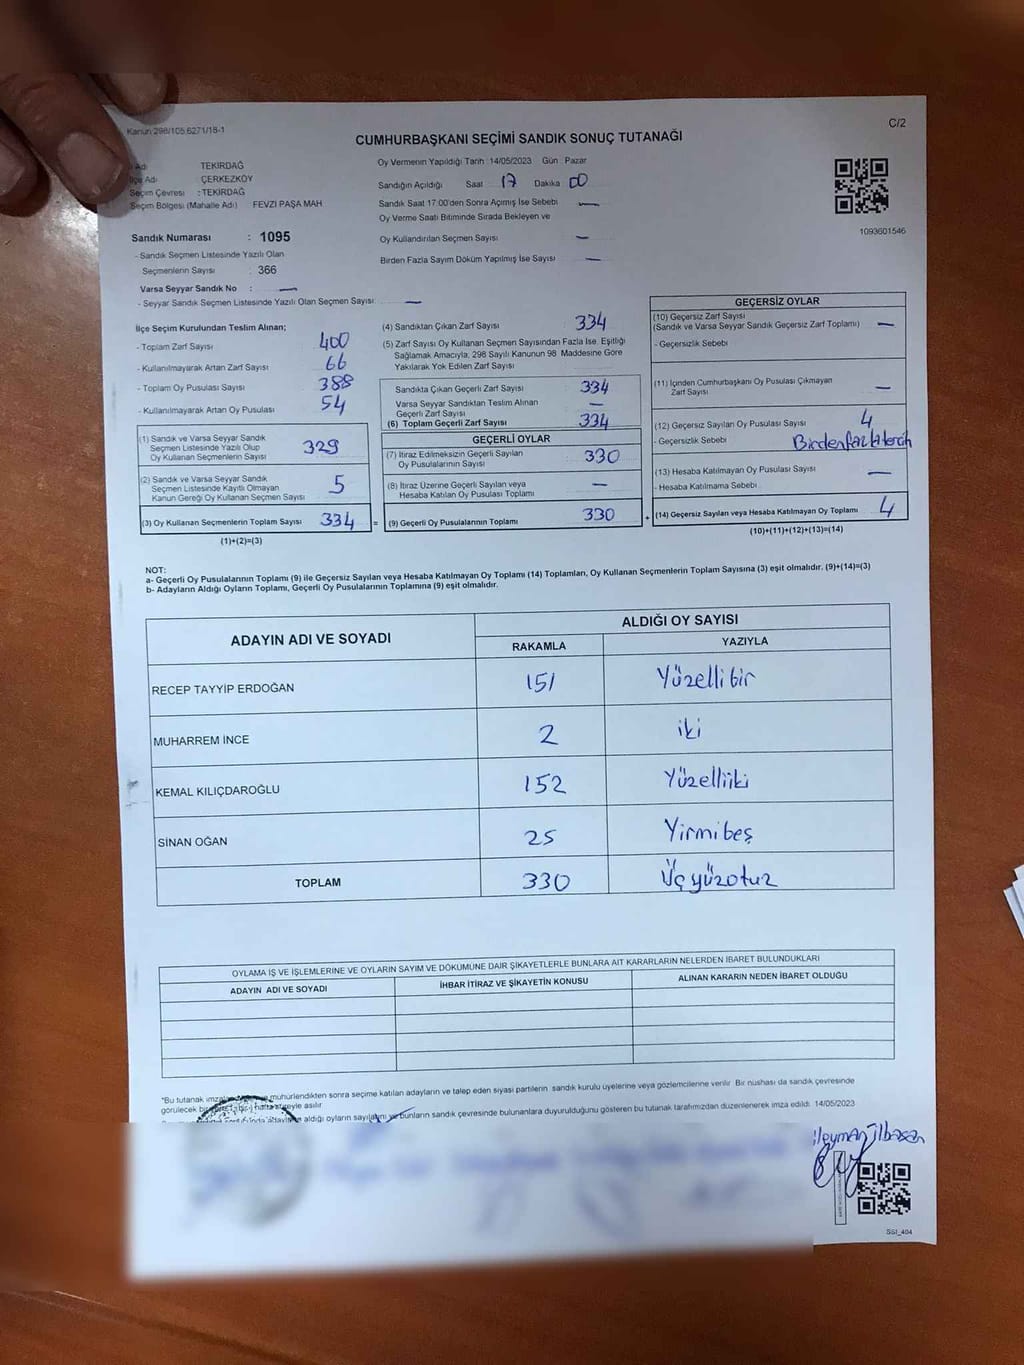 Kanun 298/105,6271/18-1
C/2
CUMHURBAŞKANI SEÇİMİ SANDIK SONUÇ TUTANAĞI
Adı TEKİRDAĞ
İlçe Adı ÇERKEZKÖY
Seçim Çevresi : TEKİRDAĞ
Seçim Bölgesi (Mahalle Adı) FEVZİ PAŞA MAH
Sandık Numarası : 1095
- Sandık Seçmen Listesinde Yazılı Olan
Seçmenlerin Sayısı : 366
Varsa Seyyar Sandık No : —
- Seyyar Sandık Seçmen Listesinde Yazılı Olan Seçmen Sayısı : —
Oy Vermenin Yapıldığı Tarih 14/05/2023 Gün Pazar
Sandığın Açıldığı Saat 17 Dakika 00
Sandık Saat 17:00'den Sonra Açımış İse Sebebi —
Oy Verme Saati Bitiminde Sırada Bekleyen ve
Oy Kullandırılan Seçmen Sayısı —
Birden Fazla Sayım Döküm Yapılmış İse Sayısı —
1093601546
İlçe Seçim Kurulundan Teslim Alınan;
- Toplam Zarf Sayısı 400
- Kullanılmayarak Artan Zarf Sayısı 66
- Toplam Oy Pusulası Sayısı 388
- Kullanılmayarak Artan Oy Pusulası 54
(1) Sandık ve Varsa Seyyar Sandık
Seçmen Listesinde Yazılı Olup
Oy Kullanan Seçmenlerin Sayısı 329
(2) Sandık ve Varsa Seyyar Sandık
Seçmen Listesinde Kayıtlı Olmayan
Kanun Gereği Oy Kullanan Seçmen Sayısı 5
(3) Oy Kullanan Seçmenlerin Toplam Sayısı 334 =
(1)+(2)=(3)
(4) Sandıktan Çıkan Zarf Sayısı 334
(5) Zarf Sayısı Oy Kullanan Seçmen Sayısından Fazla İse, Eşitliği
Sağlamak Amacıyla, 298 Sayılı Kanunun 98 Maddesine Göre
Yakılarak Yok Edilen Zarf Sayısı
Sandıkta Çıkan Geçerli Zarf Sayısı 334
Varsa Seyyar Sandıktan Teslim Alınan
Geçerli Zarf Sayısı —
(6) Toplam Geçerli Zarf Sayısı 334
GEÇERLİ OYLAR
(7) İtiraz Edilmeksizin Geçerli Sayılan
Oy Pusulalarının Sayısı 330
(8) İtiraz Üzerine Geçerli Sayılan veya
Hesaba Katılan Oy Pusulası Toplamı —
(9) Geçerli Oy Pusulalarının Toplamı 330 +
GEÇERSİZ OYLAR
(10) Geçersiz Zarf Sayısı
(Sandık ve Varsa Seyyar Sandık Geçersiz Zarf Toplamı) —
- Geçersizlik Sebebi
(11) İçinden Cumhurbaşkanı Oy Pusulası Çıkmayan
Zarf Sayısı —
(12) Geçersiz Sayılan Oy Pusulası Sayısı 4
- Geçersizlik Sebebi Birden fazla tercih
(13) Hesaba Katılmayan Oy Pusulası Sayısı —
- Hesaba Katılmama Sebebi
(14) Geçersiz Sayılan veya Hesaba Katılmayan Oy Toplamı 4
(10)+(11)+(12)+(13)=(14)
NOT:
a- Geçerli Oy Pusulalarının Toplamı (9) ile Geçersiz Sayılan veya Hesaba Katılmayan Oy Toplamı (14) Toplamları, Oy Kullanan Seçmenlerin Toplam Sayısına (3) eşit olmalıdır. (9)+(14)=(3)
b- Adayların Aldığı Oyların Toplamı, Geçerli Oy Pusulalarının Toplamına (9) eşit olmalıdır.
ADAYIN ADI VE SOYADI
ALDIĞI OY SAYISI
RAKAMLA YAZIYLA
RECEP TAYYİP ERDOĞAN 151 Yüzellibir
MUHARREM İNCE 2 iki
KEMAL KILIÇDAROĞLU 152 Yüzelliiki
SİNAN OĞAN 25 Yirmibeş
TOPLAM 330 Üçyüzotuz
OYLAMA İŞ VE İŞLEMLERİNE VE OYLARIN SAYIM VE DÖKÜMÜNE DAİR ŞİKAYETLERLE BUNLARA AİT KARARLARIN NELERDEN İBARET BULUNDUKLARI
ADAYIN ADI VE SOYADI İHBAR İTİRAZ VE ŞİKAYETİN KONUSU ALINAN KARARIN NEDEN İBARET OLDUĞU
*Bu tutanak mühürlendikten sonra seçime katılan adayların ve talep eden siyasi partilerin sandık kurulu üyelerine veya gözlemcilerine verilir. Bir nushası da sandık çevresinde
görülecek bir hafta süreyle asılır
aldığı oyların sayılarını ve bunların sandık çevresinde bulunanlara duyurulduğunu gösteren bu tutanak tarafımızdan düzenlenerek imza edildi. 14/05/2023
SSI_404